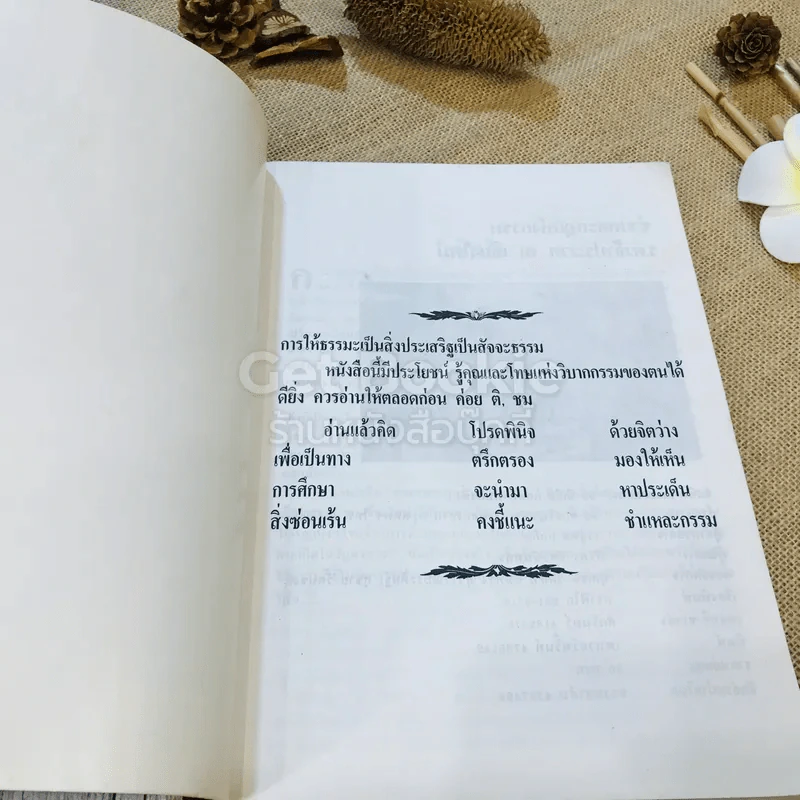 การให้ธรรมะเป็นสิ่งประเสริฐเป็นสัจจะธรรม
หนังสือนี้มีประโยชน์ รู้คุณและโทษแห่งวิบากกรรมของตนได้
ดียิ่ง ควรอ่านให้ตลอดก่อน ค่อย ติ, ชม
Get Bookie
ร้านหนังสือบุ๊คกี้
อ่านแล้วคิด โปรดพินิจ ด้วยจิตว่าง
เพื่อเป็นทาง ตรึกตรอง มองให้เห็น
การศึกษา จะนำมา หาประเด็น
สิ่งซ่อนเร้น คงชี้แนะ ชำแหละกรรม